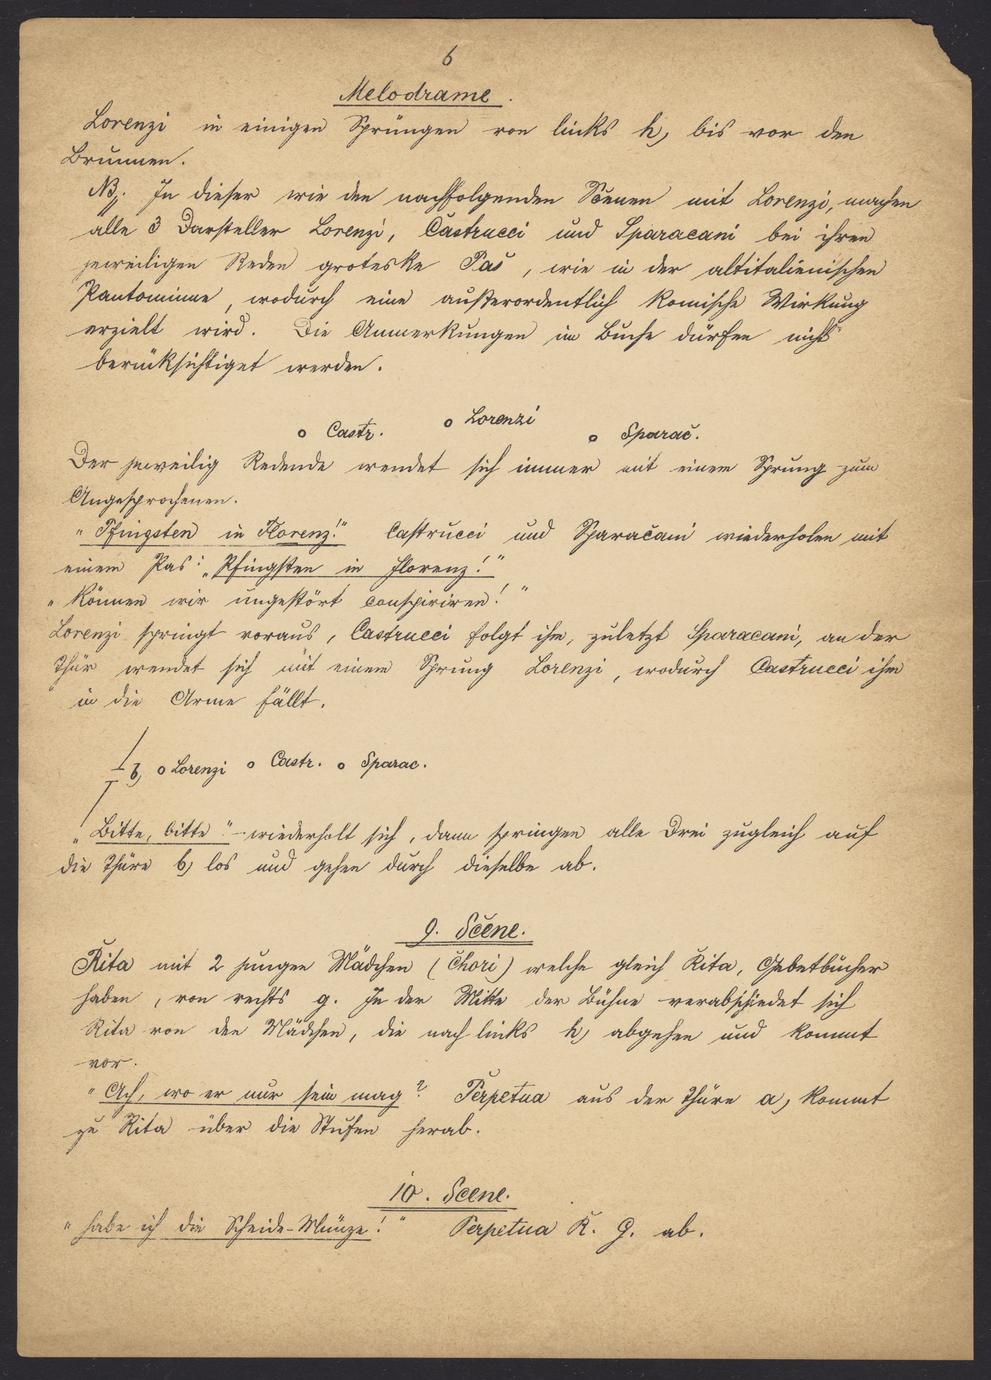 6
Melodrame.
Lorenzi in einigen Sprüngen von links h, bis vor den
Brunnen.
NB. In dieser wie den nachfolgenden Scenen mit Lorenzi, machen
alle 3 Darsteller Lorenzi, Castrucci und Sparacani bei ihren
jeweiligen Reden groteske Pas, wie in der altitalienischen
Pantomime, wodurch eine außerordentlich komische Wirkung
erzielt wird. Die Anmerkungen im Buche dürfen nicht
berücksichtiget werden.
o Castr. o Lorenzi o Sparac.
Der jeweilig Redende wendet sich immer mit einem Sprung zum
Angesprochenen.
"Pfingsten in Florenz!" Castrucci und Sparacani wiederholen mit
einem Pas: "Pfingsten in Florenz!"
"Können wir ungestört conspiriren!"
Lorenzi springt voraus, Castrucci folgt ihm, zuletzt Sparacani, an der
Thür wendet sich mit einem Sprung Lorenzi, wodurch Castrucci ihm
in die Arme fällt.
b, o Lorenzi o Castr. o Sparac.
"Bitte, bitte" – wiederholt sich, dann springen alle Drei zugleich auf
die Thüre b, los und gehen durch dieselbe ab.
9. Scene.
Rita mit 2 jungen Mädchen (Chori) welche gleich Rita, Gebetbücher
haben, von rechts g. In der Mitte der Bühne verabschiedet sich
Rita von den Mädchen, die nach links h, abgehen und kommt
vor.
"Ach, wo er nur sein mag? Perpetua aus der Thüre a, kommt
zu Rita über die Stufen herab.
10. Scene.
"habe ich die Scheide-Münze!" Perpetua R. G. ab.